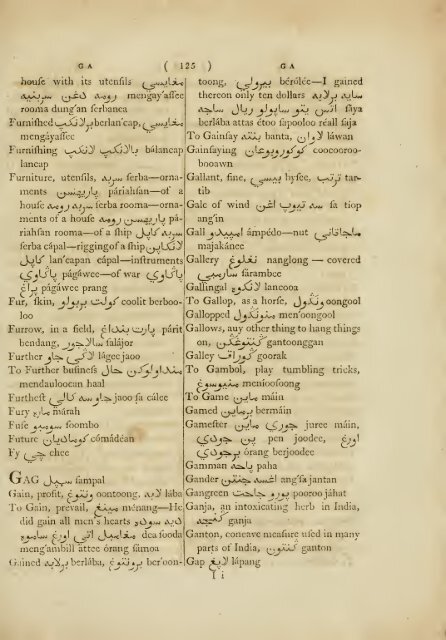 G A ( 125 ) G A
houſe with its utenſils مغايسي
رومه دغن سربنيه mengay'aſſee
rooma dung'an ſerbanea
Furniſhed برلانكڤ berlan'cap, مغايسي
mengáyaſſee
Furniſhing بالانكڤ bálancap لانكڤ
lancap
Furniture, utenſils, سربه ſerba—orna-
ments ڤاريهسن páriahſan—of a
houſe سرب رومه ſerba rooma—orna-
ments of a houſe ڤاريهسن رومه pá-
riahſan rooma—of a ſhip سربه كاڤل
ſerba cápal—rigging of a ſhip لانكاڤن
كاڤل lan'capan cápal—inſtruments
ڤاكاوي págáwee—of war ڤاكاوي
ڤراغ págáwee prang
Fur, ſkin, كولت بربولو coolit berboo-
loo
Furrow, in a field, ڤاريت بنداغ párit
bendang, سالاجور ſalájor
Further لاكي جاو lágee jaoo
To Further buſineſs منداولوكن حال
mendauloocan haal
Furtheſt جاو سه كالي jaoo ſa cálee
Fury مارة márah
Fuſe سومبو ſoombo
Future كوماديان cómádéan
Fy چي chee
GAG سمڤل ſampal
Gain, profit, اونتوغ oontoong, لابه lába
To Gain, prevail, مينغ ménang—He
did gain all men's hearts دي سوده
مغامبل اتي اورغ سامو dea ſooda
meng'ambill áttee órang ſámoa
Gained برلابه berlába, برونتوغ ber'oon-
toong, بيرولي bérólée—I gained
thereon only ten dollars ساي برلابه
اتس يتو ساڤولو ريال ساج ſáya
berlába attas éetoo ſapooloo réall ſaja
To Gainſay بنته banta, لاون láwan
Gainſaying كوكوروبوعان coocooroo-
booawn
Gallant, fine, بيسي byſee, ترتب tar-
tib
Gale of wind سه تيوڤ اغن ſa tiop
ang'in
Gall امڤيدو ámpédo—nut ماجاكاني
majakánee
Gallery نغلوغ nanglong — covered
سارمبي ſárambee
Gallingal لانكوه lancooa
To Gallop, as a horſe, وندول oongool
Gallopped مندول men'oongool
Gallows, any other thing to hang things
on, كنتوغن gantoonggan
Galley كوراڤ goorak
To Gambol, play tumbling tricks,
منيوسوغ menſooſoong
To Game ماين máin
Gamed برماين bermáin
Gameſter جوري ماين juree máin,
پن جودي pen joodee, اورغ
برجودي órang berjoodee
Gamman ڤاحه paha
Gander اغسه جنتن ang'ſa jantan
Gangreen ڤورو جاحت pooroo jáhat
Ganja, an intoxicating herb in India,
كنجه ganja
Ganton, concave meaſure uſed in many
parts of India, كنتون ganton
Gap لاڤغ lápang
I i